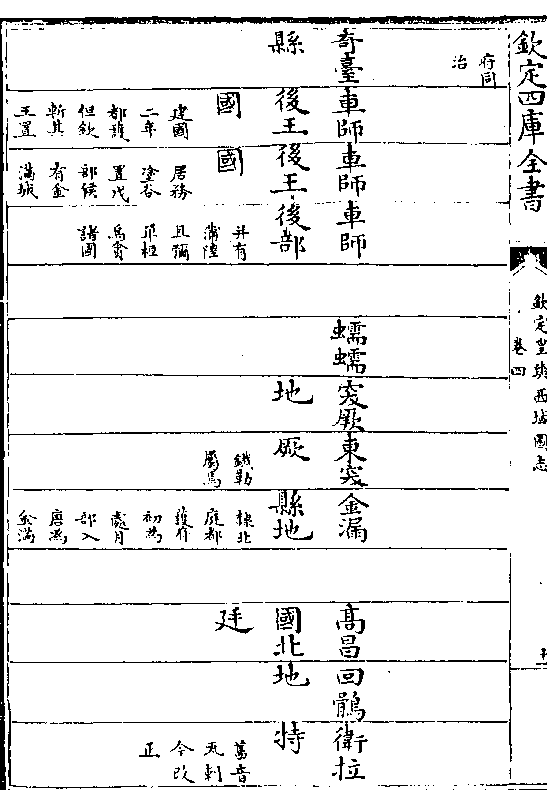 欽定四庫全書
欽定皇輿西域圖志
卷四
府同治
奇臺縣
車師後王國
建國二年都護但欽斬其王置
車師後王國
居務塗谷置戊部侯有金滿城
車師後部
并有蒲陸且彌單桓烏貪諸國
蠕蠕
突厥地
東突厥
鐵勒屬焉
金滿縣地
隸北庭都護府初為處月部入唐為金滿
高昌國北廷
回鶻地
衛拉特
舊音瓦剌今改正